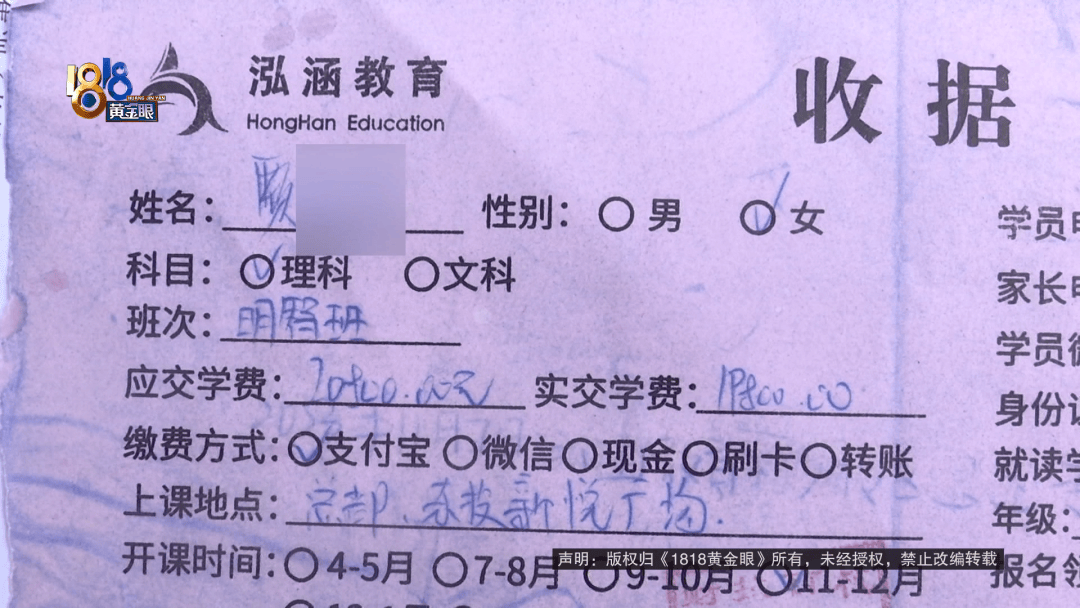 1818
HUANG JIN YAN
黄金眼
泓涵教育
HongHan Education
收据
姓名: 顾 性别: 男 女
学员电
科目: 理科 文科
家长电
班次: 明 班
学员微
应交学费: .00元 实交学费: 19800.00
身份证
缴费方式: 支付宝 微信 现金 刷卡 转账
就读学
上课地点: 总部 新悦广场.
年级:
开课时间: 4-5月 7-8月 9-10月 11-12月
报名
声明:版权归《1818黄金眼》所有,未经授权,禁止改编转载